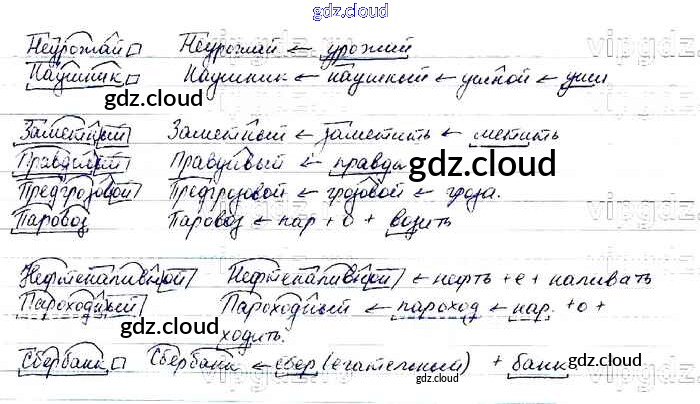 gdz.cloud
Неурожай Неурожай ← урожай
Наушник Наушник ← наушный ← ушной ← уши
gdz.cloud
Заметный Заметный ← заметить ← метить
Правдивый Правдивый ← правда
gdz.cloud
Предгрозовой Предгрозовой ← грозовой ← гроза.
Паровоз Паровоз ← пар + о + возить
Нефтеналивной Нефтеналивной ← нефть + е + наливать
Пароходный Пароходный ← пароход ← пар. + о +
gdz.cloud
ходить.
Сбербанк Сбербанк ← сбер(егательный) + банк
gdz.cloud
gdz.cloud
vipgdz
vipgdz
vipgdz
vipgdz